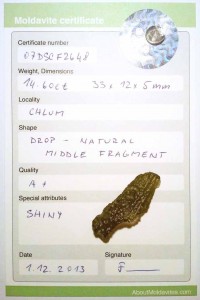 Moldavite certificate
Certificate number
07DSCF2648
Weight, Dimensions
14.60ct 35 x 12 x 5 mm
Locality
CHLUM
Shape
DROP - NATURAL
MIDDLE FRAGMENT
Quality
A+
Special attributes
SHINY
Date
Signature
1.12.2013
AboutMoldavites.com